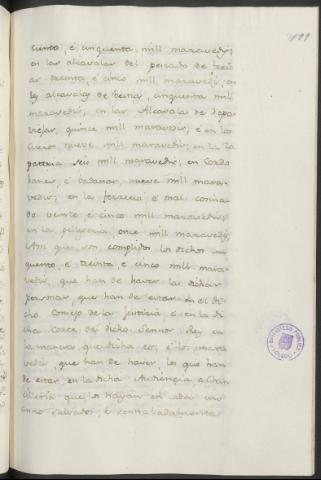 199
ciento, é cinquenta mill maravedis;
en las alcavalas del pescado de
ar treinta, é cinco mill maravedis; en
las alcavalas de bestias, cinquenta mill
maravedis; en las Alcavala de Ropa
viejas, quince mill maravedis; é en los
cueros, nueve mill maravedis; en la Za
pateria seis mill maravedis; en Cordo
banes, é badanas, nueve mill mara-
vedis; en la ferreria, é mal cocina
do veinte é cinco mill maravedis;
en la pelegeria, once mill maravedis;
Asi que son complidos los dichos
quento, é treinta, é cinco mill mara-
vedis, que han de haver las dichas
personas, que han de estar en el di-
cho Consejo de la Justicia, é en la di
cha Corte del dicho Sennor Rey en
la manera que dicha es; é los mara
vedis, que han de haver, los que han
de estar en la dicha Audiençia, é Chan
cilleria que los hayan en cada un
anno salvados, é senttaladamente
BIBLIOTECA PUBLICA
TOLEDO